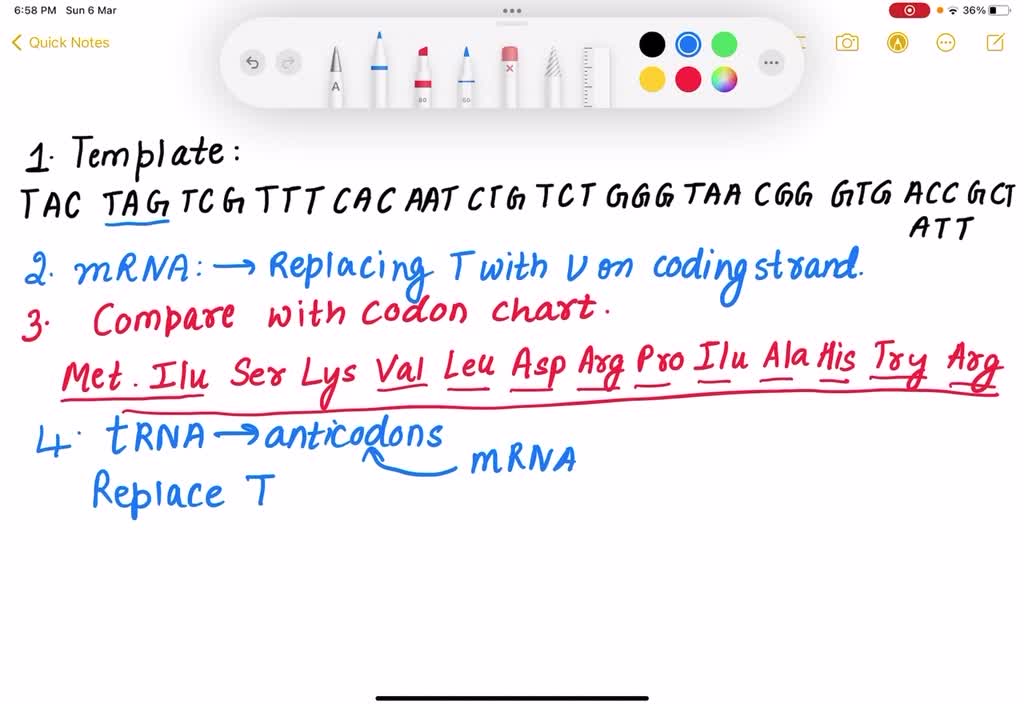 6:58 PM Sun 6 Mar
36%
Quick Notes
A
80
50
1. Template:
TAC TAG TCG TTT CAC AAT CTG TCT GGG TAA CGG GTG ACC GCT
ATT
2. mRNA: → Replacing T with U on coding strand.
3. Compare with codon chart.
Met. Ilu Ser Lys Val Leu Asp Arg Pro Ilu Ala His Try Arg
4. tRNA → anticodons
mRNA
Replace T